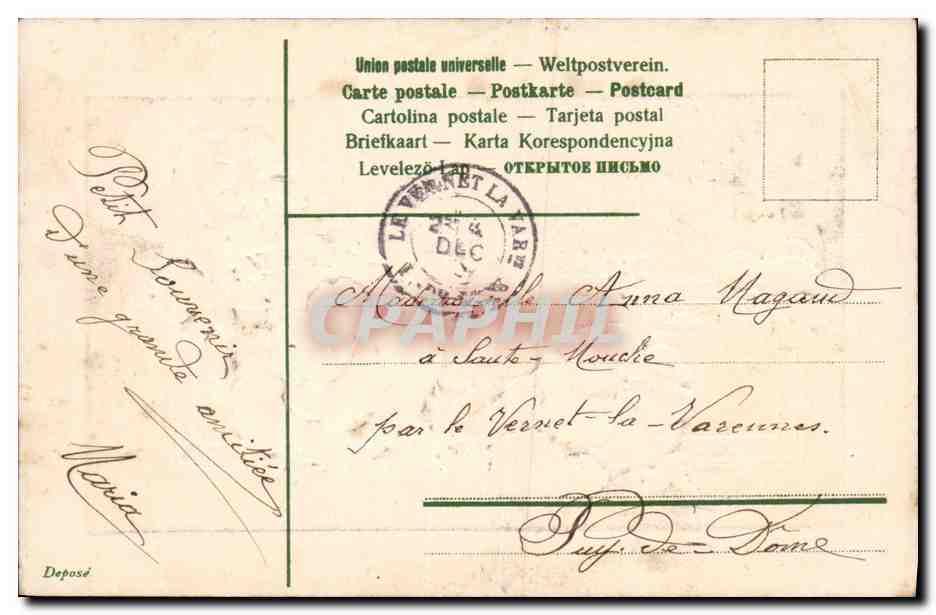 Union postale universelle — Weltpostverein.
Carte postale — Postkarte — Postcard
Cartolina postale — Tarjeta postal
Briefkaart — Karta Korespondencyjna
Levelező-Lap — ОТКРЫТОЕ ПИСЬМО
LE VERNET LA VAR
DEC
Petit Souvenir
D'une grande amitiée
Maria
Mademoiselle Anna Nagaud
à Saute-Mouche
par le Vernet-la-Varennes.
Puy-de-Dome
Deposé
CPAPHIL